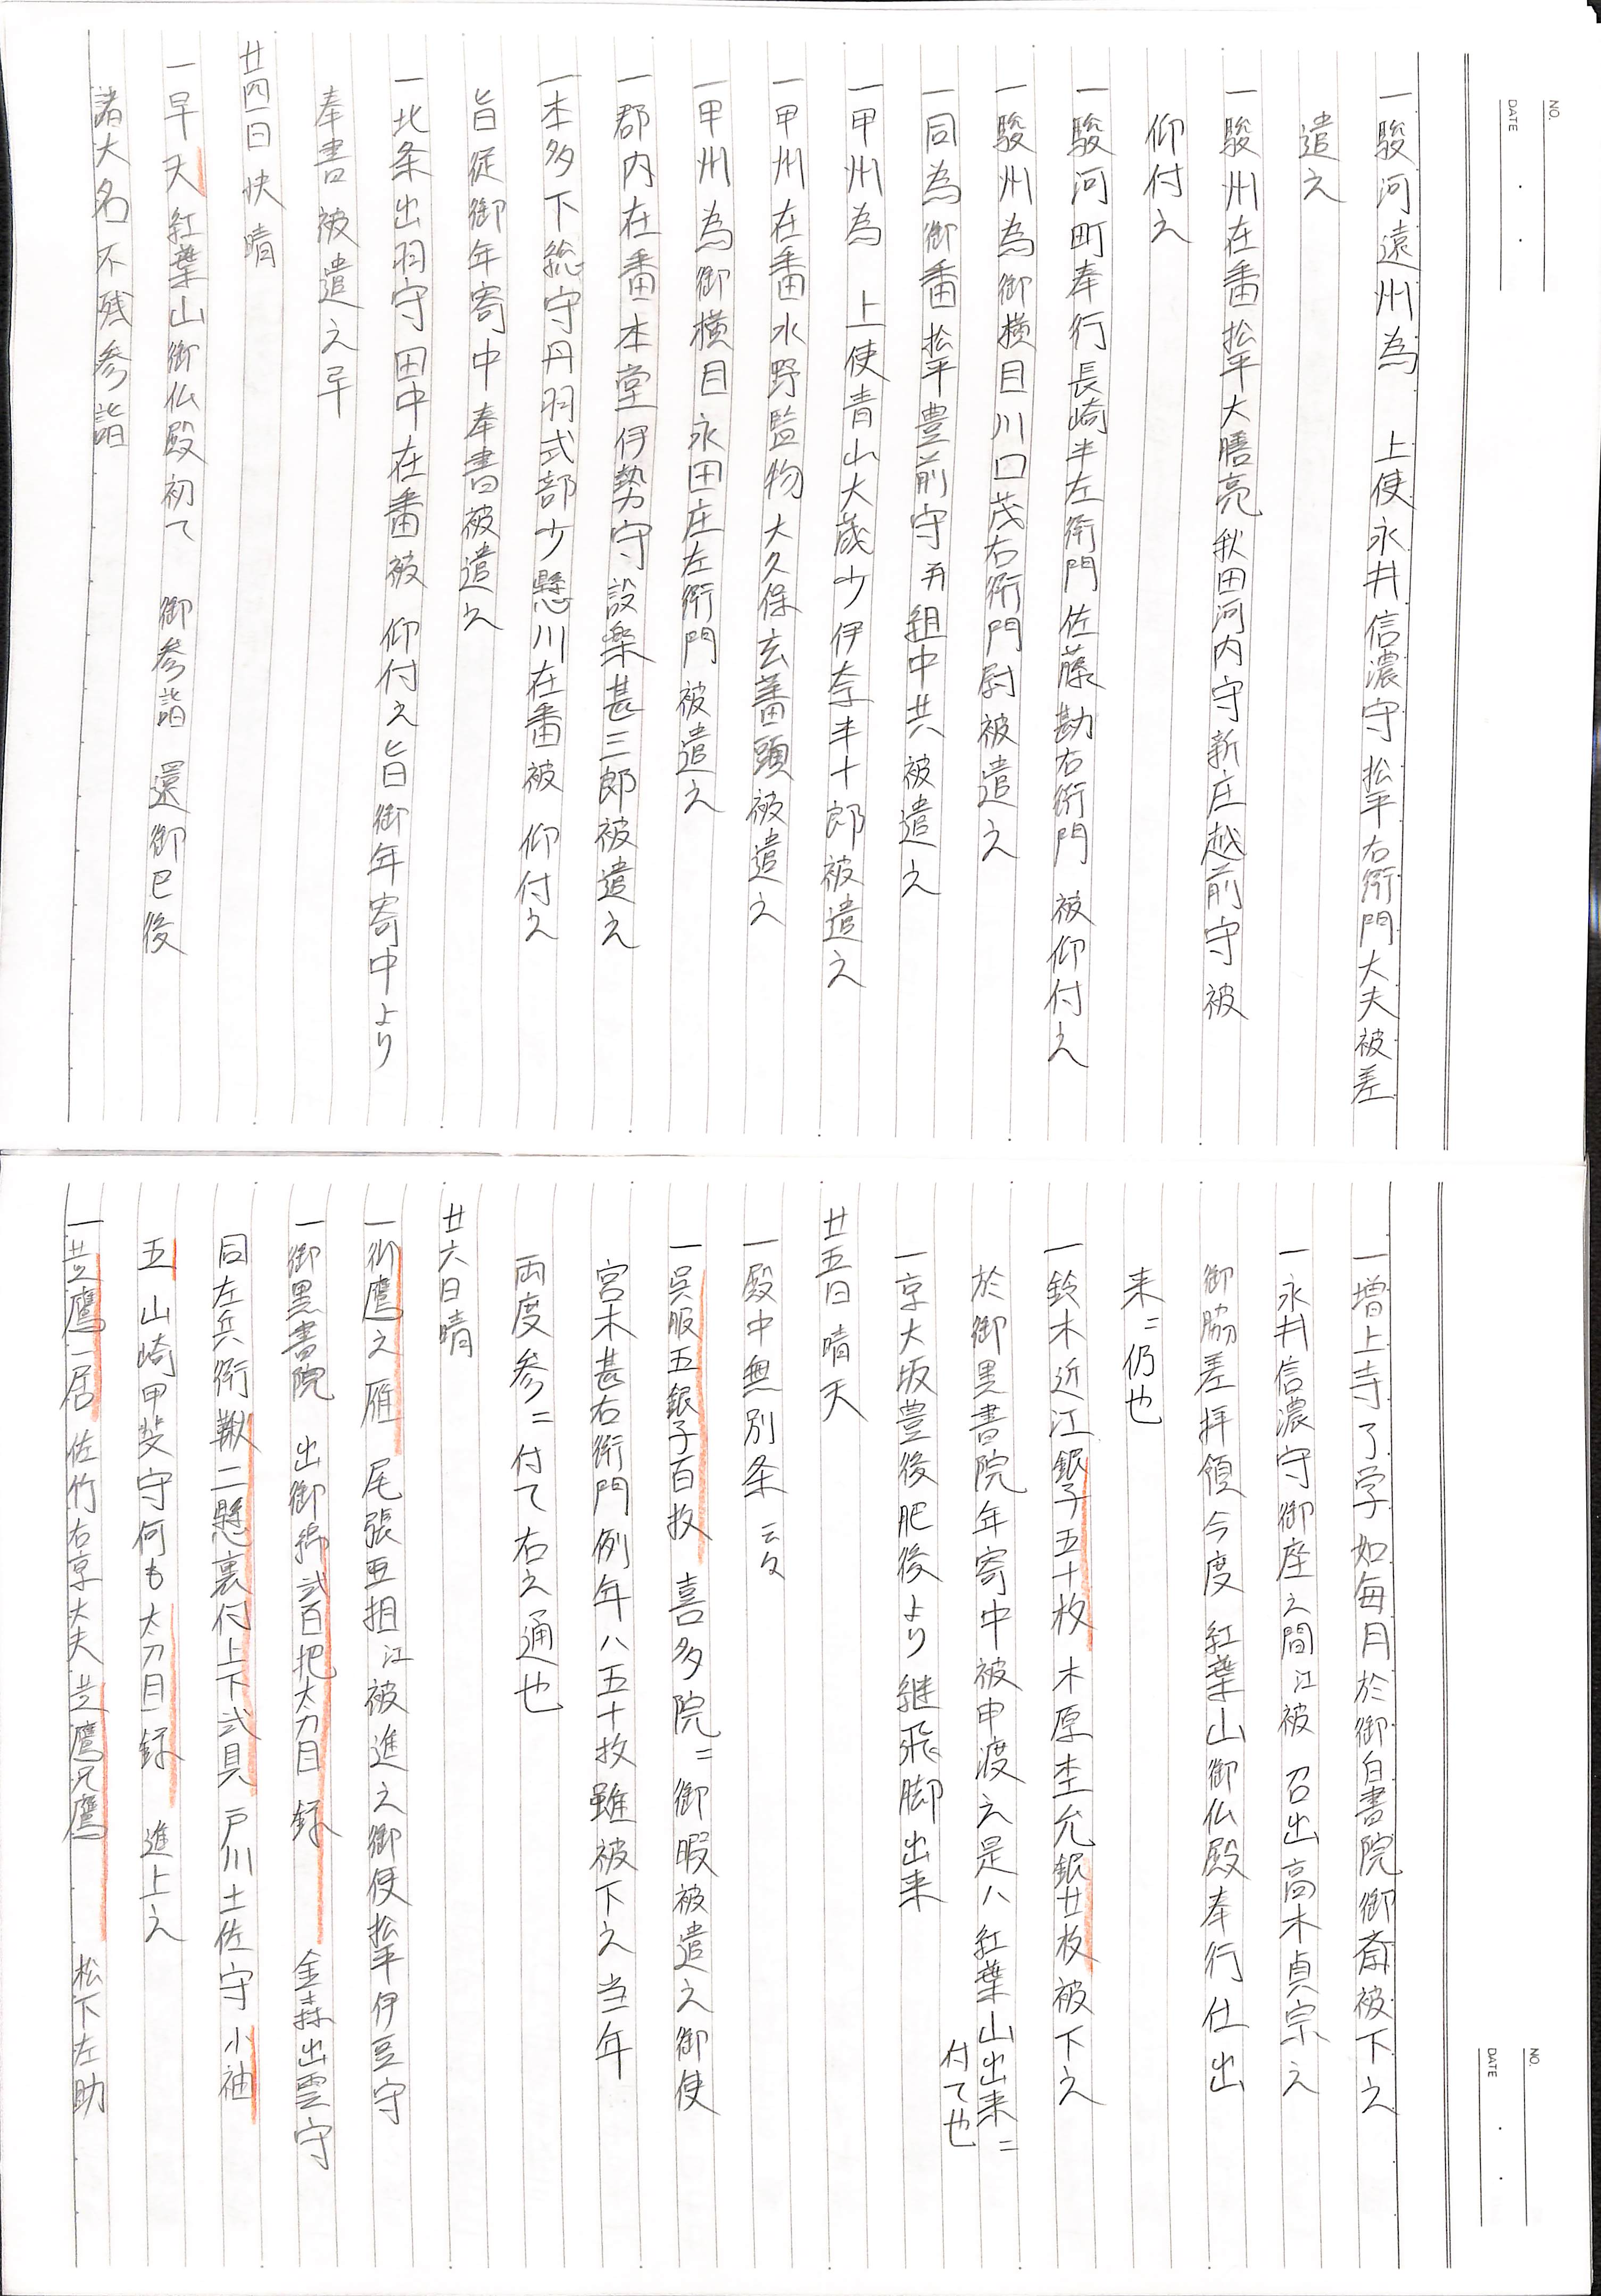 NO.
DATE
一駿河遠州為　上使永井信濃守松平右衛門大夫被差
遣之
一駿州在番松平大膳亮秋田河内守新庄越前守被
仰付之
一駿河町奉行長崎半左衛門佐藤勘右衛門 被仰付之
一駿州為御横目川口茂右衛門尉被遣之
一同為御番松平豊前守并組中共被遣之
一甲州為　上使青山大蔵少伊奈半十郎被遣之
一甲州在番水野監物大久保玄蕃頭被遣之
一甲州為御横目永田庄左衛門被遣之
一郡内在番本堂伊勢守設楽甚三郎被遣之
一本多下総守丹羽式部少懸川在番被 仰付之
旨従御年寄中奉書被遣之
一北条出羽守田中在番被 仰付之旨御年寄中より
奉書被遣之
廿四日快晴
一早天紅葉山御仏殿初て　御参詣 還御已後
諸大名不残参詣
NO.
DATE
一増上寺了学如毎月於御白書院御斎被下之
一永井信濃守御座之間江被 召出高木貞宗之
御脇差拝領今度 紅葉山御仏殿奉行仕出
来ニ仍也
一鈴木近江銀子五十枚木原杢允銀廿枚被下之
於御黒書院年寄中被申渡之是ハ紅葉山出来ニ
付て也
一京大坂豊後肥後より継飛脚出来
廿五日晴天
一殿中無別条 云々
一呉服五銀子百枚 喜多院ニ御暇被遣之御使
宮木甚右衛門例年ハ五十枚雖被下之当年
両度参ニ付て右之通也
廿六日晴
一御鷹之雁 尾張亜相江被進之御使松平伊豆守
一御黒書院 出御綿弐百把太刀目録 金森出雲守
同左兵衛鞦二懸裏付上下弐具戸川土佐守小袖
五 山崎甲斐守何も太刀目録 進上之
一黄鷹一居佐竹右京大夫黄鷹兄鷹 松下左助